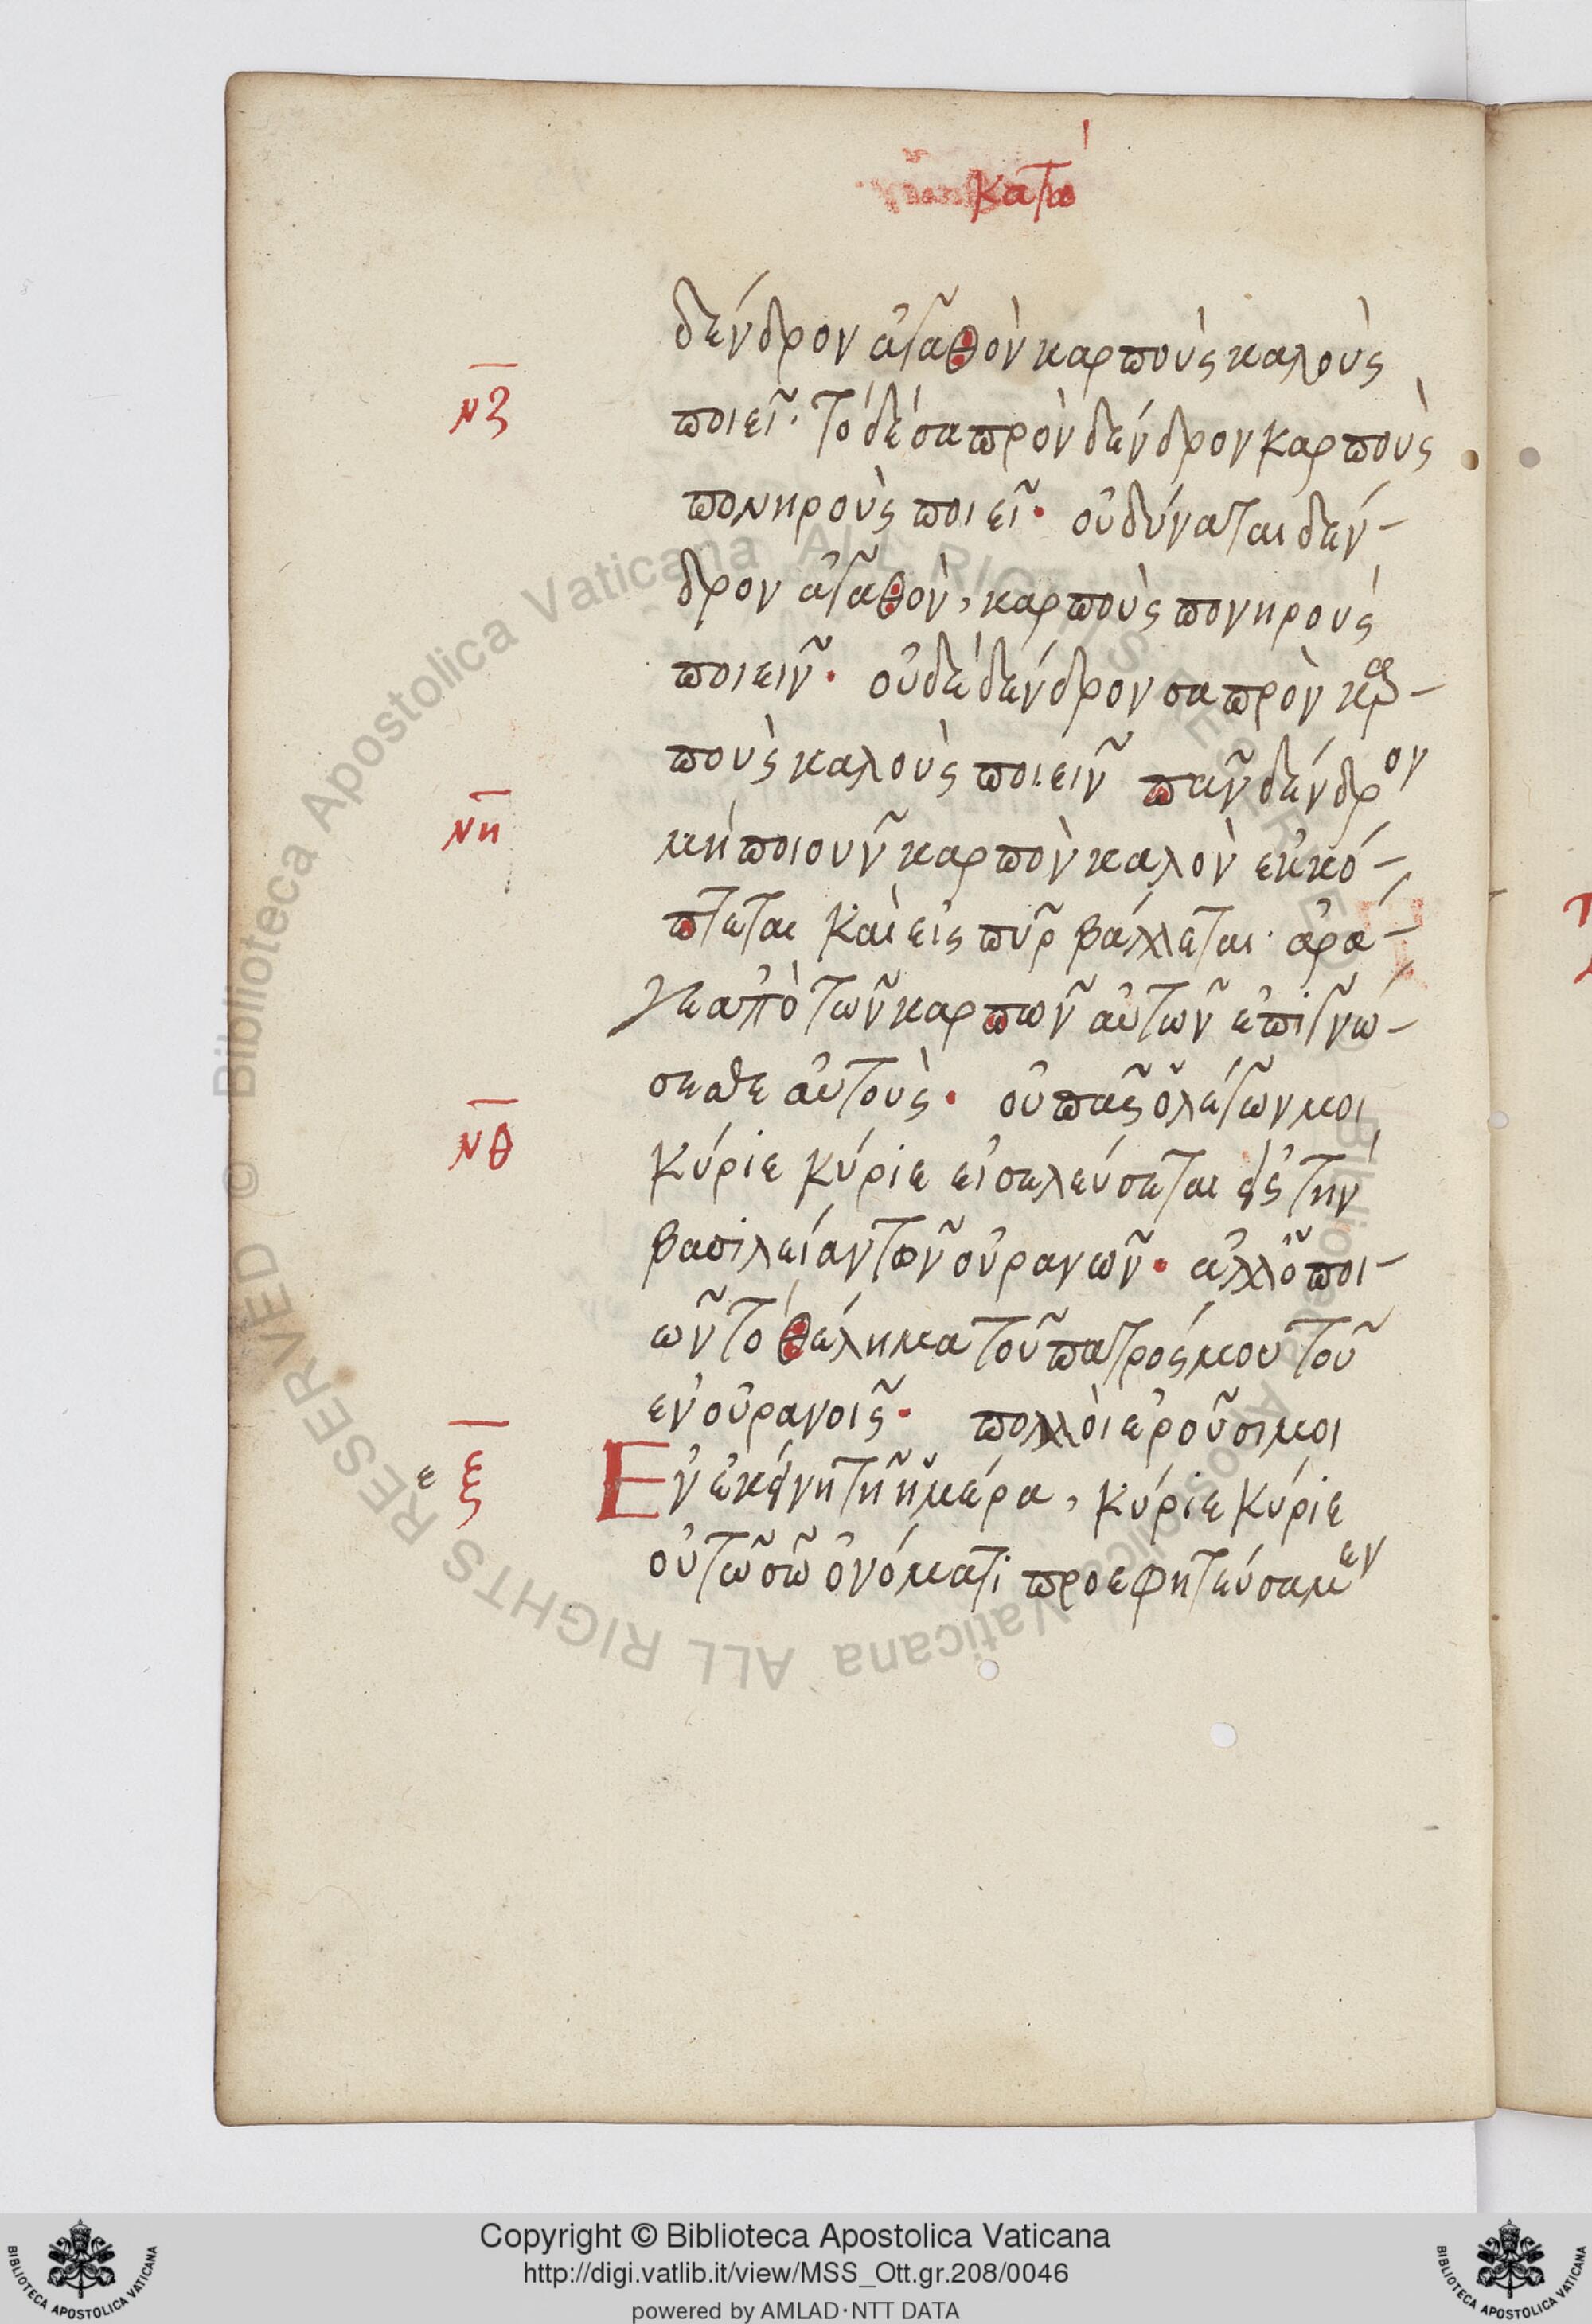 κατω
δένδρον ἀγαθὸν καρποὺς καλοὺς
νζ
ποιεῖ· τὸ δὲ σαπρὸν δένδρον καρποὺς
πονηροὺς ποιεῖ· οὐ δύναται δέν-
δρον ἀγαθὸν, καρποὺς πονηροὺς
ποιεῖν· οὐδὲ δένδρον σαπρὸν καρ-
ποὺς καλοὺς ποιεῖν πᾶν δένδρον
νη
μὴ ποιοῦν καρπὸν καλὸν ἐκκό-
πτεται καὶ εἰς πῦρ βάλλεται· ἄρα-
γε ἀπὸ τῶν καρπῶν αὐτῶν ἐπιγνώ-
σεσθε αὐτοὺς· οὐ πᾶς ὁ λέγων μοι
νθ
κύριε κύριε εἰσελεύσεται εἰς τὴν
βασιλείαν τῶν οὐρανῶν· ἀλλ ὁ ποι-
ῶν τὸ θέλημα τοῦ πατρός μου τοῦ
ἐν οὐρανοῖς· πολλοὶ ἐροῦσι μοι
ε ξ
Ἐν ἐκείνη τῆ ἡμέρα, κύριε κύριε
οὐ τῶ σῶ ὀνόματι προεφητεύσαμεν
Copyright © Biblioteca Apostolica Vaticana
http://digi.vatlib.it/view/MSS_Ott.gr.208/0046
powered by AMLAD·NTT DATA
BIBLIOTECA APOSTOLICA VATICANA
BIBLIOTECA APOSTOLICA VATICANA
Biblioteca Apostolica Vaticana ALL RIGHTS RESERVED ©
Biblioteca Apostolica Vaticana ALL RIGHTS RESERVED ©